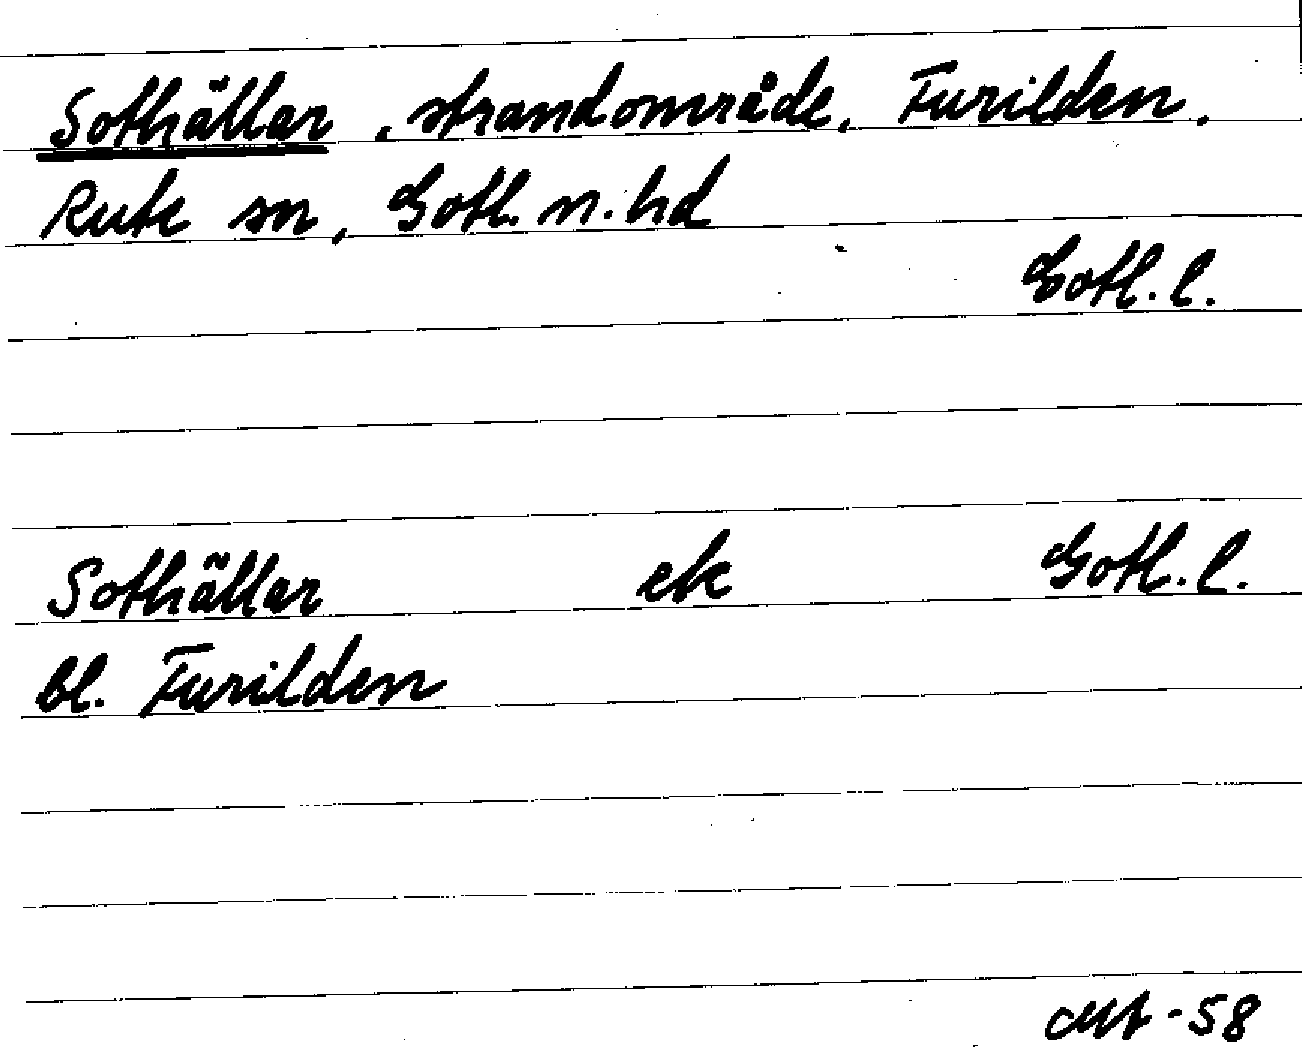 Sothällar, strandområde, Furilden,
Rute sn, Gotl. n. hd
Gotl. l.
Sothällar ek Gotl. l.
bl. Furilden
-58